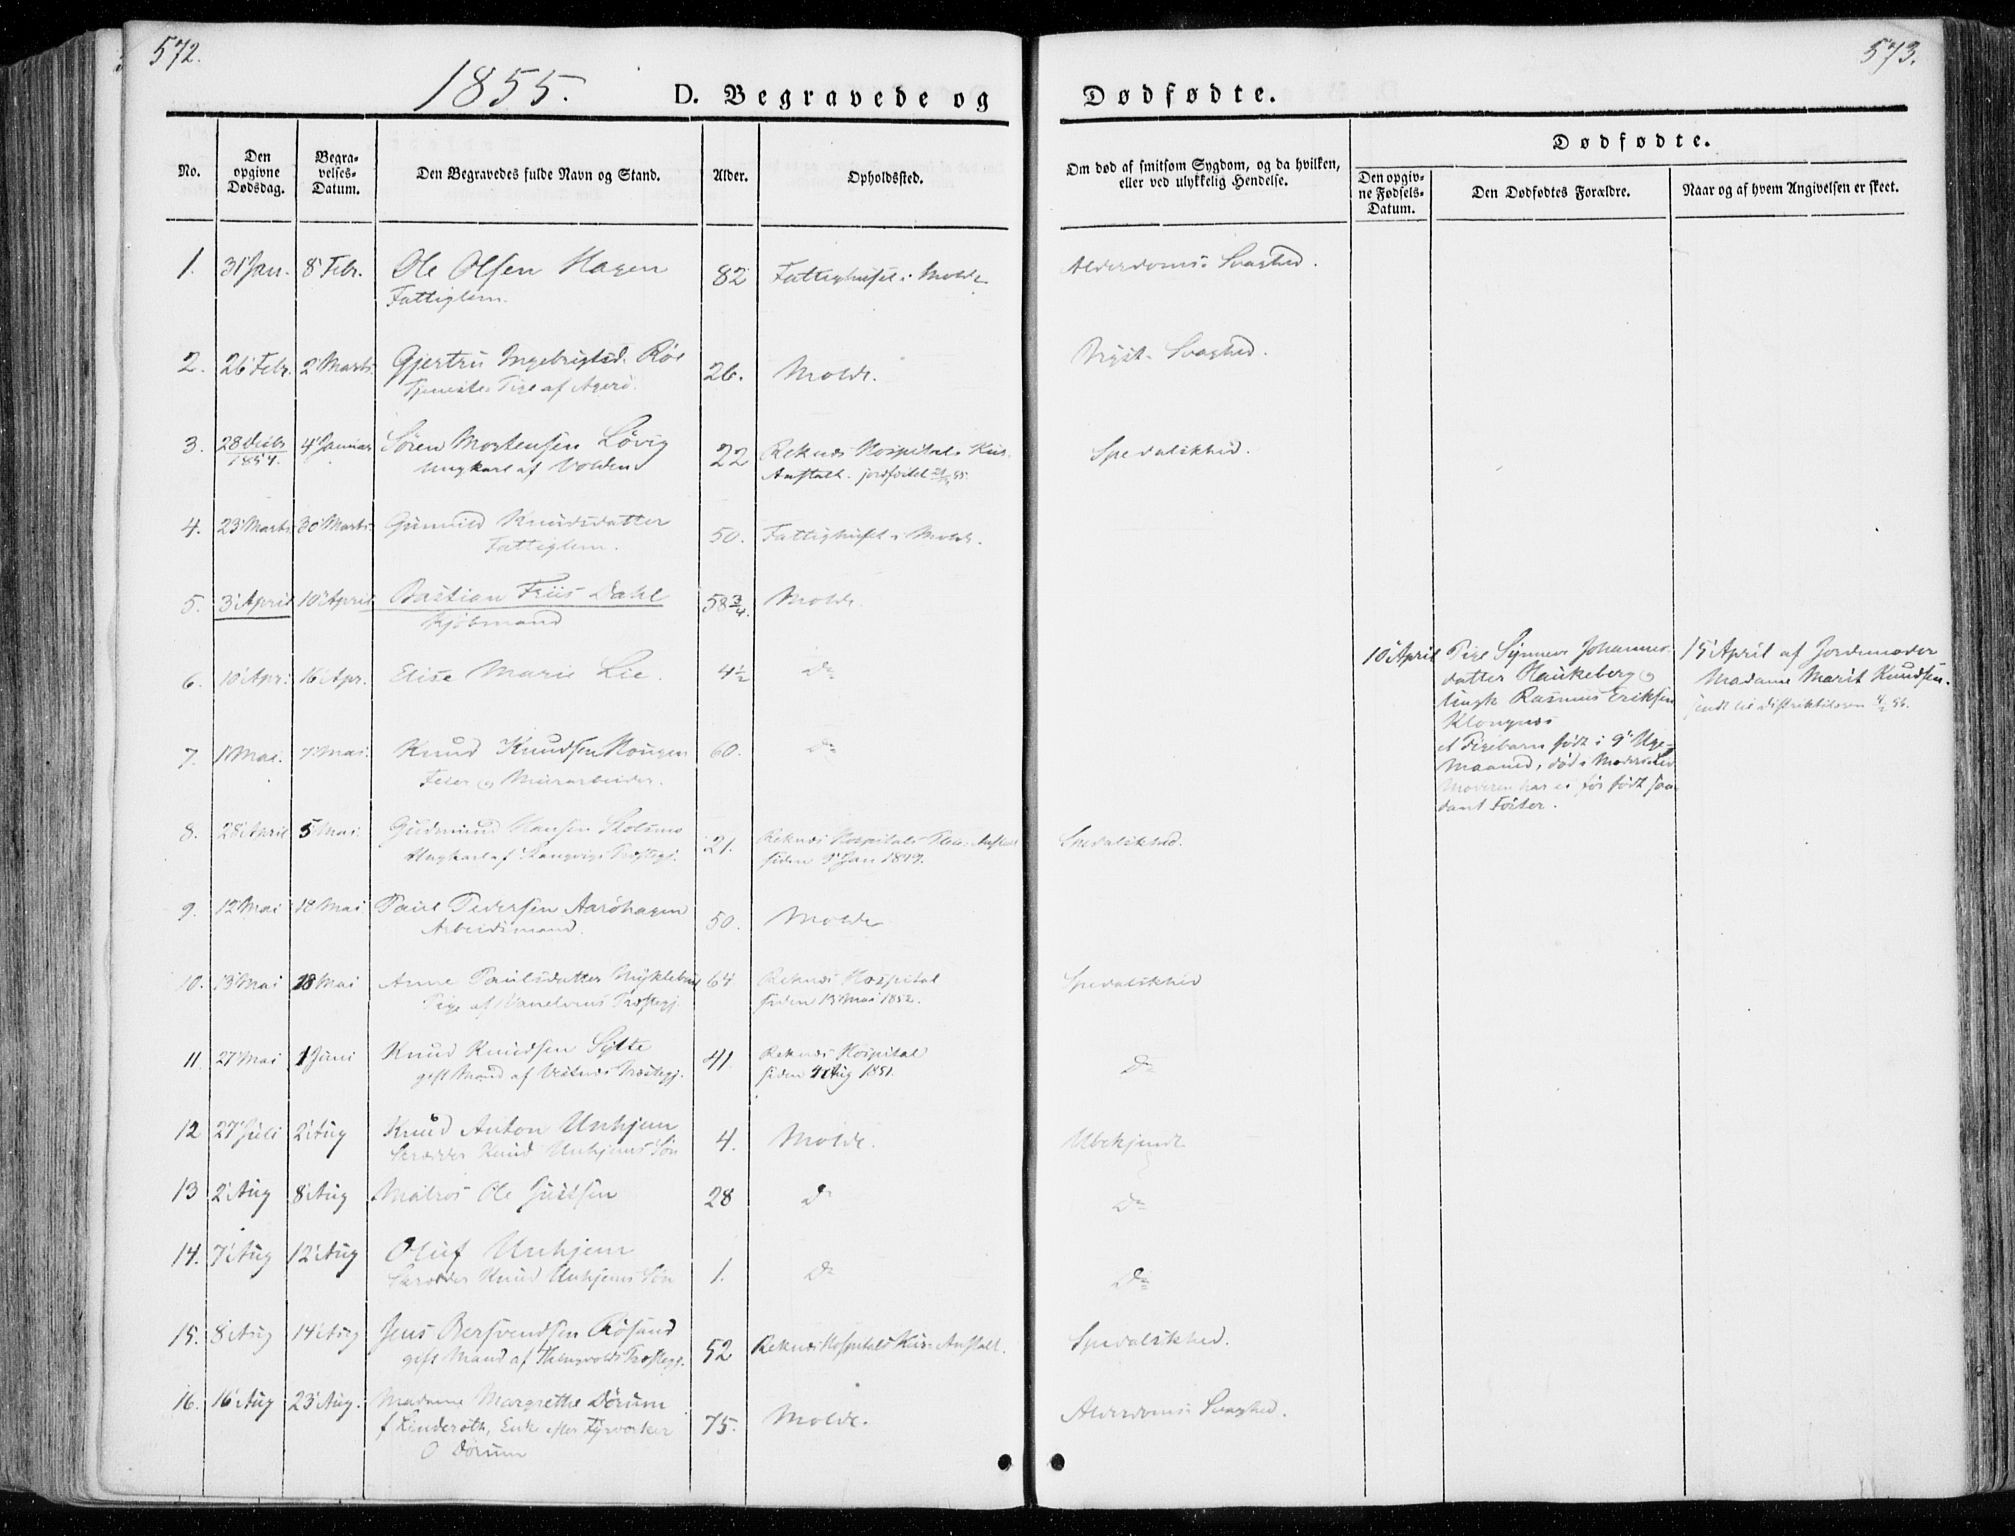 572.
573.
1855.
D. Begravede og Dødfødte.
No.
Den opgivne Dødsdag.
Begravelses-Datum.
Den Begravedes fulde Navn og Stand.
Alder.
Opholdssted.
Om død af smitsom Sygdom, og da hvilken,
eller ved ulykkelig Hendelse.
Dødfødte.
Den opgivne Fødsels-Datum.
Den Dødfødtes Forældre.
Naar og af hvem Angivelsen er skeet.
1. 31 Jan. 8 Febr. Ole Olsen Hagen 82 Fattighuset i Molde Alderdoms Svaghed.
Fattiglem.
2. 26 Febr. 2 Marts Gjertru Ingebrigtsd. Røe 26. Molde. Bryst-Svaghed.
Tjeneste Pige af Agerø.
3. 28 Decbr 1854. 4 Januar Søren Mortensen Løvig 22 Reknæs Hospitals Kur- Spedalskhed.
Ungkarl af Volden Anstalt. jordfæstet
4. 23 Marts 30 Marts Gunnild Knudsdatter 50. Fattighuset i Molde.
Fattiglem.
5. 3 April 10 April Bastian Friis Dahl 58 3/4. Molde.
Kjøbmand
6. 10 Apr. 16 Apr. Elise Marie Lie. 4 1/2 Do
7. 1 Mai. 7 Mai. Knud Knudsen Hougen 60. Do
Feier og Murarbeider.
8. 28 April 5 Mai Gudmund Hansen 21. Reknæs Hospitals Anstalt Spedalskhed.
Ungkarl af Præstegj. siden 9 Jan 1849.
9. 12 Mai 18 Mai Paul Pedersen Aarøhagen 50. Molde
Arbeidsmand.
10. 13 Mai 18 Mai Anne Paulsdatter Myklebust 64 Reknæs Hospital Spedalskhed
Pige af Vanelvens Præstegj. siden 13 Mai 1852.
11. 27 Mai 1 Juni Knud Knudsen Sylte 41. Reknæs Hospital Do
gift Mand af Vestnæs Præstegj. siden 4 Aug 1851.
12 27 Juli 2 Aug Knud Anton Unhjem 4. Molde. Ubekjendt
Skrædder Knud Unhjems Søn
13 2 Aug 8 Aug Matros Ole Juulsen 28 Do Do
14. 7 Aug 12 Aug Oluf Unhjem 1. Do Do
Skrædder Knud Unhjems Søn
15. 8 Aug 14 Aug Jens Bersvendsen Røsand 52 Reknæs Hospitals Kur-Anstalt. Spedalskhed.
gift Mand af Præstegj.
16. 16 Aug 23 Aug. Madame Margrethe Dørum 75. Molde. Alderdoms Svaghed.
f. Linderoth, Enke efter Fyrværker
O Dørum
10 April
Pige Synneve Johannes-
datter Haukeberg og
Ungk Rasmus Eriksen
Klongnæs
et Pigebarn født i 9
Maaned, død i Moders Liv
Moderen har ei før født saa-
dant Foster.
15 April af Jordemoder
Madame Marit Knudsen.